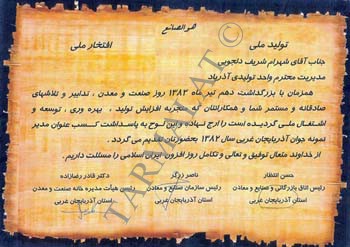 هو الصانع
تولید ملی
افتخار ملی
جناب آقای شهرام شریف دلجویی
مدیریت محترم واحد تولیدی آذرباد
همزمان با بزرگداشت دهم تیر ماه ۱۳۸۲ روز صنعت و معدن ، تدابیر و تلاشهای
صادقانه و مستمر شما و همکارانتان که منجربه افزایش تولید ، بهره وری ، توسعه و
اشتغال ملی گردیده است را ارج نهاده و این لوح به پاسداشت کسب عنوان مدیر
نمونه جوان آذربایجان غربی سال ۱۳۸۲ بحضورتان تقدیم می گردد .
از خداوند متعال توفیق و تعالی و تکامل روز افزون ایران اسلامی را مسئلت داریم.
حسن انتظار
رئیس اتاق بازرگانی و صنایع و معادن
استان آذربایجان غربی
ناصر زرگر
رئیس سازمان صنایع و معادن
استان آذربایجان غربی
دکتر قادر رضازاده
رئیس هیأت مدیره خانه صنعت و معدن
استان آذربایجان غربی